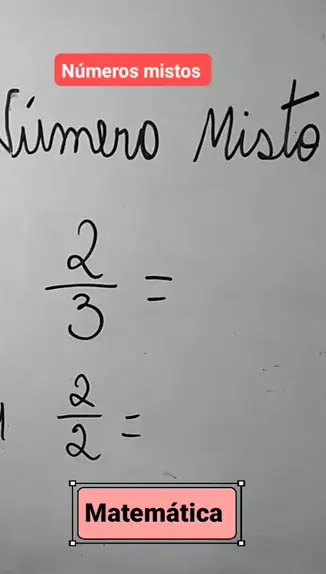 Números mistos
Número Misto
2
3 =
2
2 =
Matemática